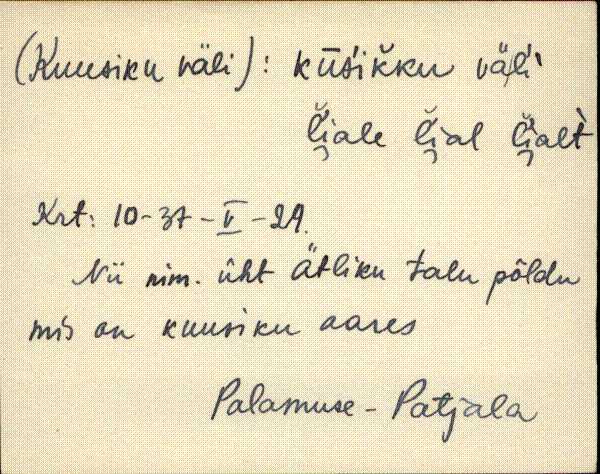 (Kuusiku väli): kūśik̆ku väl̀i
l̯̆iale l̯̆ial l̯̆ialt̀
Krt: 10-37-V-29.
Nii nim. üht Ätliku talu põldu
mis on kuusiku aares
Palamuse - Patjala